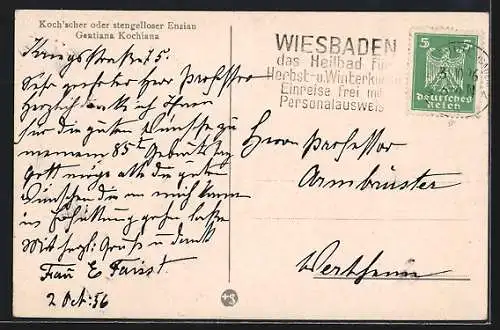 Koch'scher oder stengelloser Enzian
Gentiana Kochiana
Kriegsstraße 75.
Sehr geehrter Herr Professor
Herzlich danke ich Ihnen
für die guten Wünsche zu
meinem 85ten Geburtstag
Gott möge alle die guten
Wünschen die an mich kamen
in Erfüllung gehn lassen
Mit herzl: Gruß u Dank
Frau E Faisst
2 Oct: 56
WIESBADEN
das Heilbad für
Herbst- u. Winterkuren
Einreise frei mit
Personalausweis
5 5
Deutsches
Reich
Herrn Professor
Armbruster
Wertheim